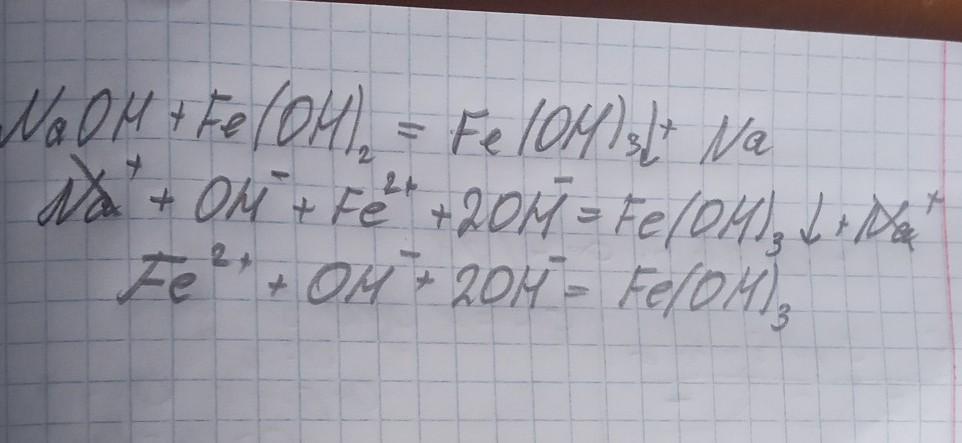 NaOH + Fe(OH)₂ = Fe(OH)₃↓ + Na
Na⁺ + OH⁻ + Fe²⁺ + 2OH⁻ = Fe(OH)₃↓ + Na⁺
Fe²⁺ + OH⁻ + 2OH⁻ = Fe(OH)₃